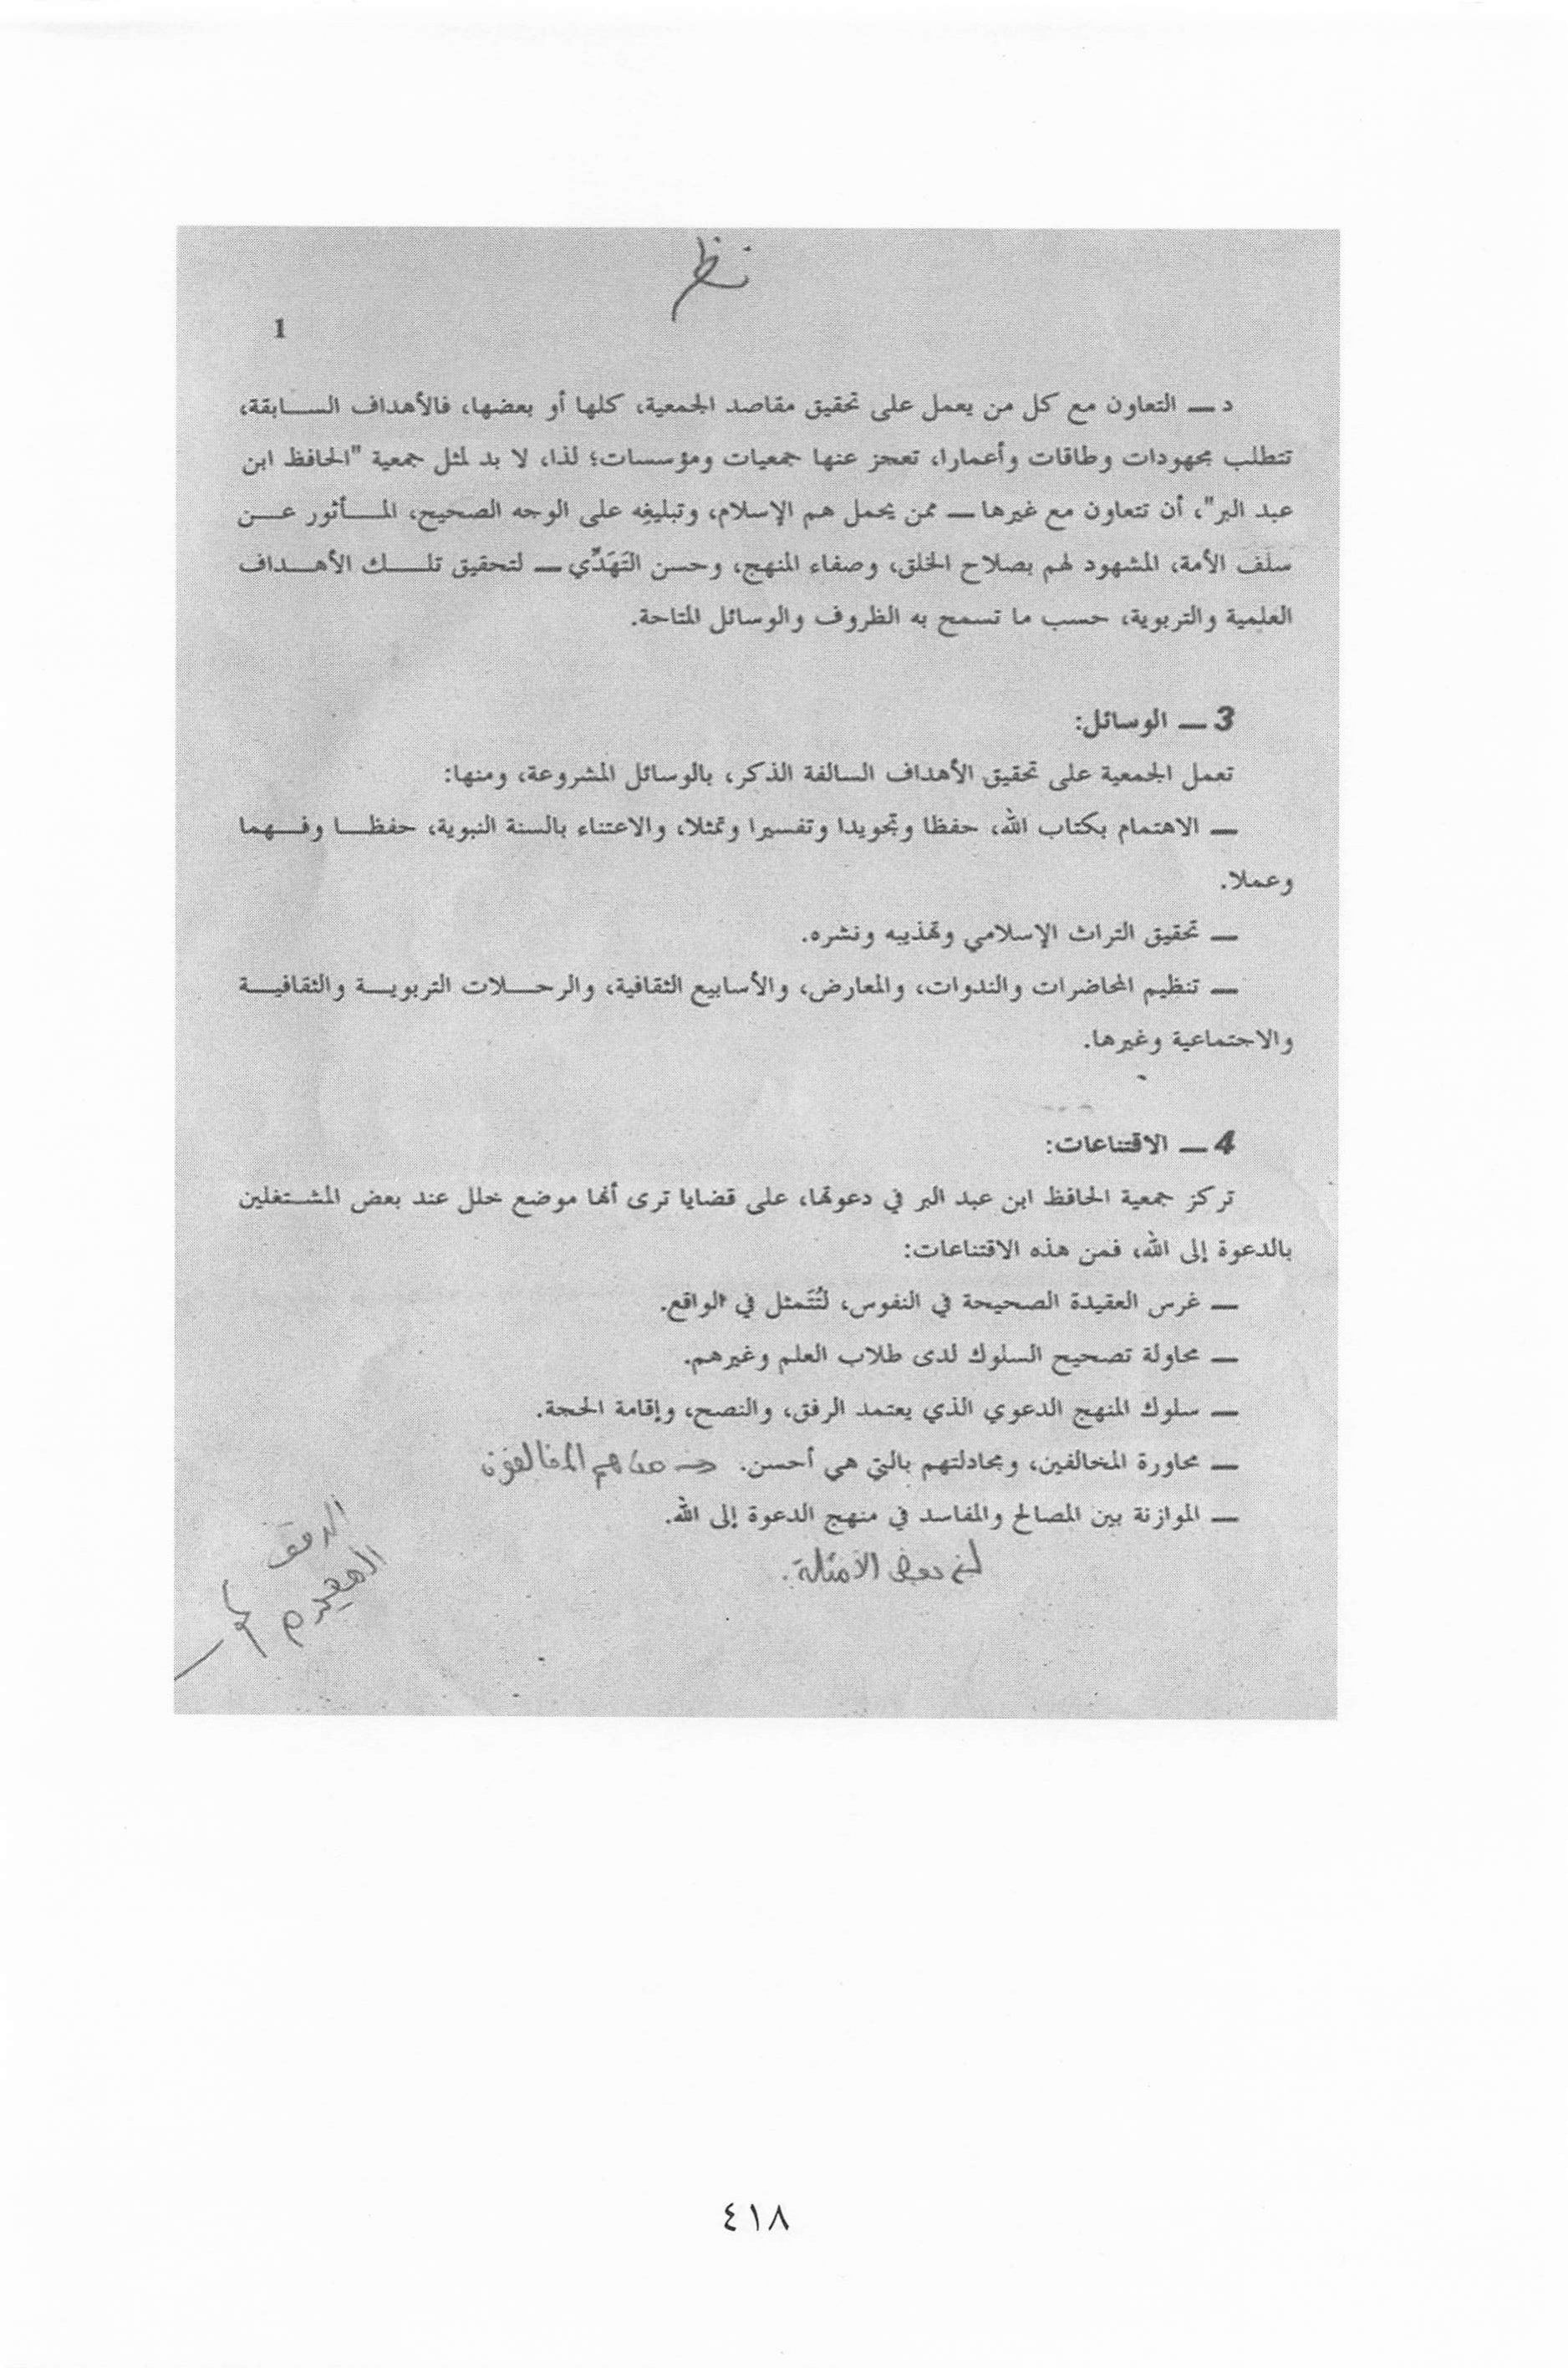 نظر
1
د ــ التعاون مع كل من يعمل على تحقيق مقاصد الجمعية، كلها أو بعضها، فالأهداف السابقة،
تتطلب مجهودات وطاقات وأعمارا، تعجز عنها جمعيات ومؤسسات؛ لذا، لا بد لمثل جمعية "الحافظ ابن
عبد البر"، أن تتعاون مع غيرها ــ ممن يحمل هم الإسلام، وتبليغِه على الوجه الصحيح، المأثور عن
سلَف الأمة، المشهود لهم بصلاح الخلق، وصفاء المنهج، وحسن التَهَدِّي ــ لتحقيق تلك الأهداف
العلمية والتربوية، حسب ما تسمح به الظروف والوسائل المتاحة.
3 ــ الوسائل:
تعمل الجمعية على تحقيق الأهداف السالفة الذكر، بالوسائل المشروعة، ومنها:
ــ الاهتمام بكتاب الله، حفظا وتجويدا وتفسيرا وتمثلا، والاعتناء بالسنة النبوية، حفظا وفهما
وعملا.
ــ تحقيق التراث الإسلامي وتهذيبه ونشره.
ــ تنظيم المحاضرات والندوات، والمعارض، والأسابيع الثقافية، والرحلات التربوية والثقافية
والاجتماعية وغيرها.
4 ــ الاقتناعات:
تركز جمعية الحافظ ابن عبد البر في دعوتها، على قضايا ترى أنها موضع خلل عند بعض المشتغلين
بالدعوة إلى الله، فمن هذه الاقتناعات:
ــ غرس العقيدة الصحيحة في النفوس، لتُتَمثل في الواقع.
ــ محاولة تصحيح السلوك لدى طلاب العلم وغيرهم.
ــ سلوك المنهج الدعوي الذي يعتمد الرفق، والنصح، وإقامة الحجة.
ــ محاورة المخالفين، ومجادلتهم بالتي هي أحسن. هم المخالفون
ــ الموازنة بين المصالح والمفاسد في منهج الدعوة إلى الله.
بعض الأمثلة.
٤١٨